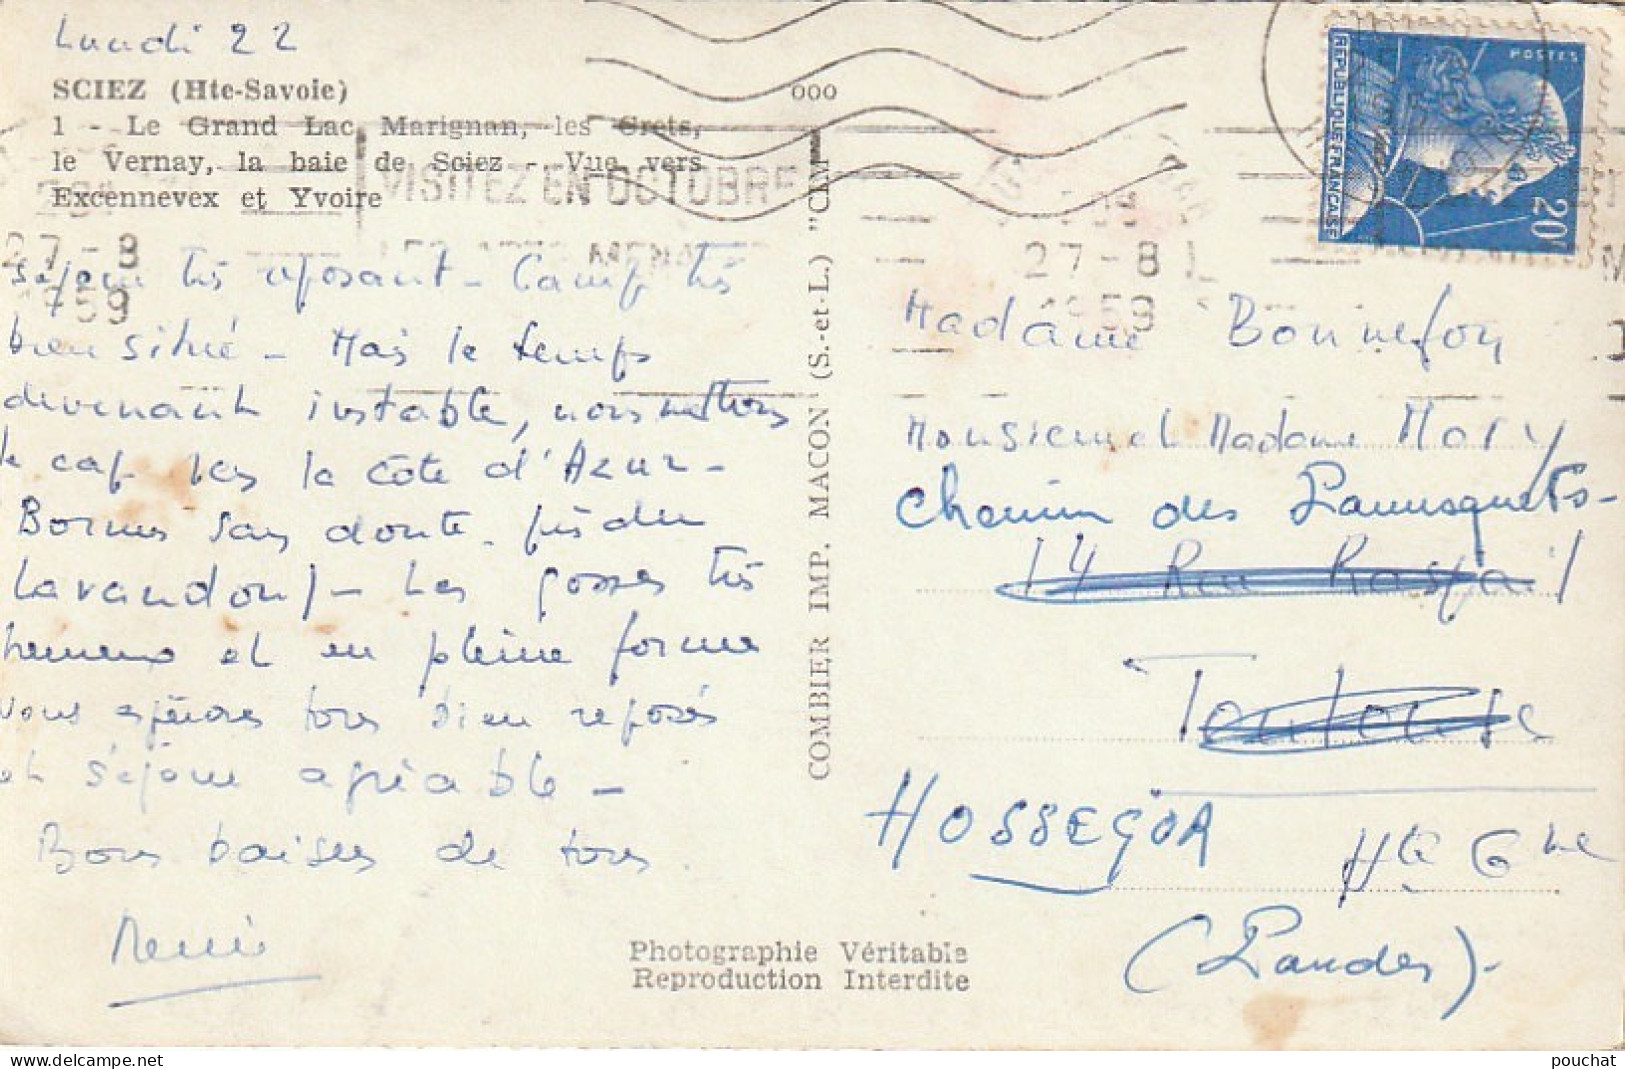 Lundi 22
SCIEZ (Hte-Savoie)
1 - Le Grand Lac, Marignan, les Crets,
le Vernay, la baie de Sciez - Vue vers
Excennevex et Yvoire
ooo
VISITEZ EN OCTOBRE
27-8
1959
27-8
1959
POSTES
REPUBLIQUE FRANCAISE
20F
Séjour très reposant - Camp très
bien situé - Mais le temps
devenant instable, nous mettons
le cap vers la côte d'Azur -
Bormes sans doute - près du
Lavandou - Les gosses très
heureux et en pleine forme
Vous espérons tous bien reposés
et séjour agréable -
Bons baisers de tous.
Renée
COMBIER IMP. MACON (S.-et-L.) "CIM"
Madame Bonnefoy
Monsieur et Madame Mary
Chemin des
14 Rue Raspail
Toulouse
HOSSEGOR
Hte Gne
(Landes).
Photographie Véritable
Reproduction Interdite
pouchat
www.delcampe.net